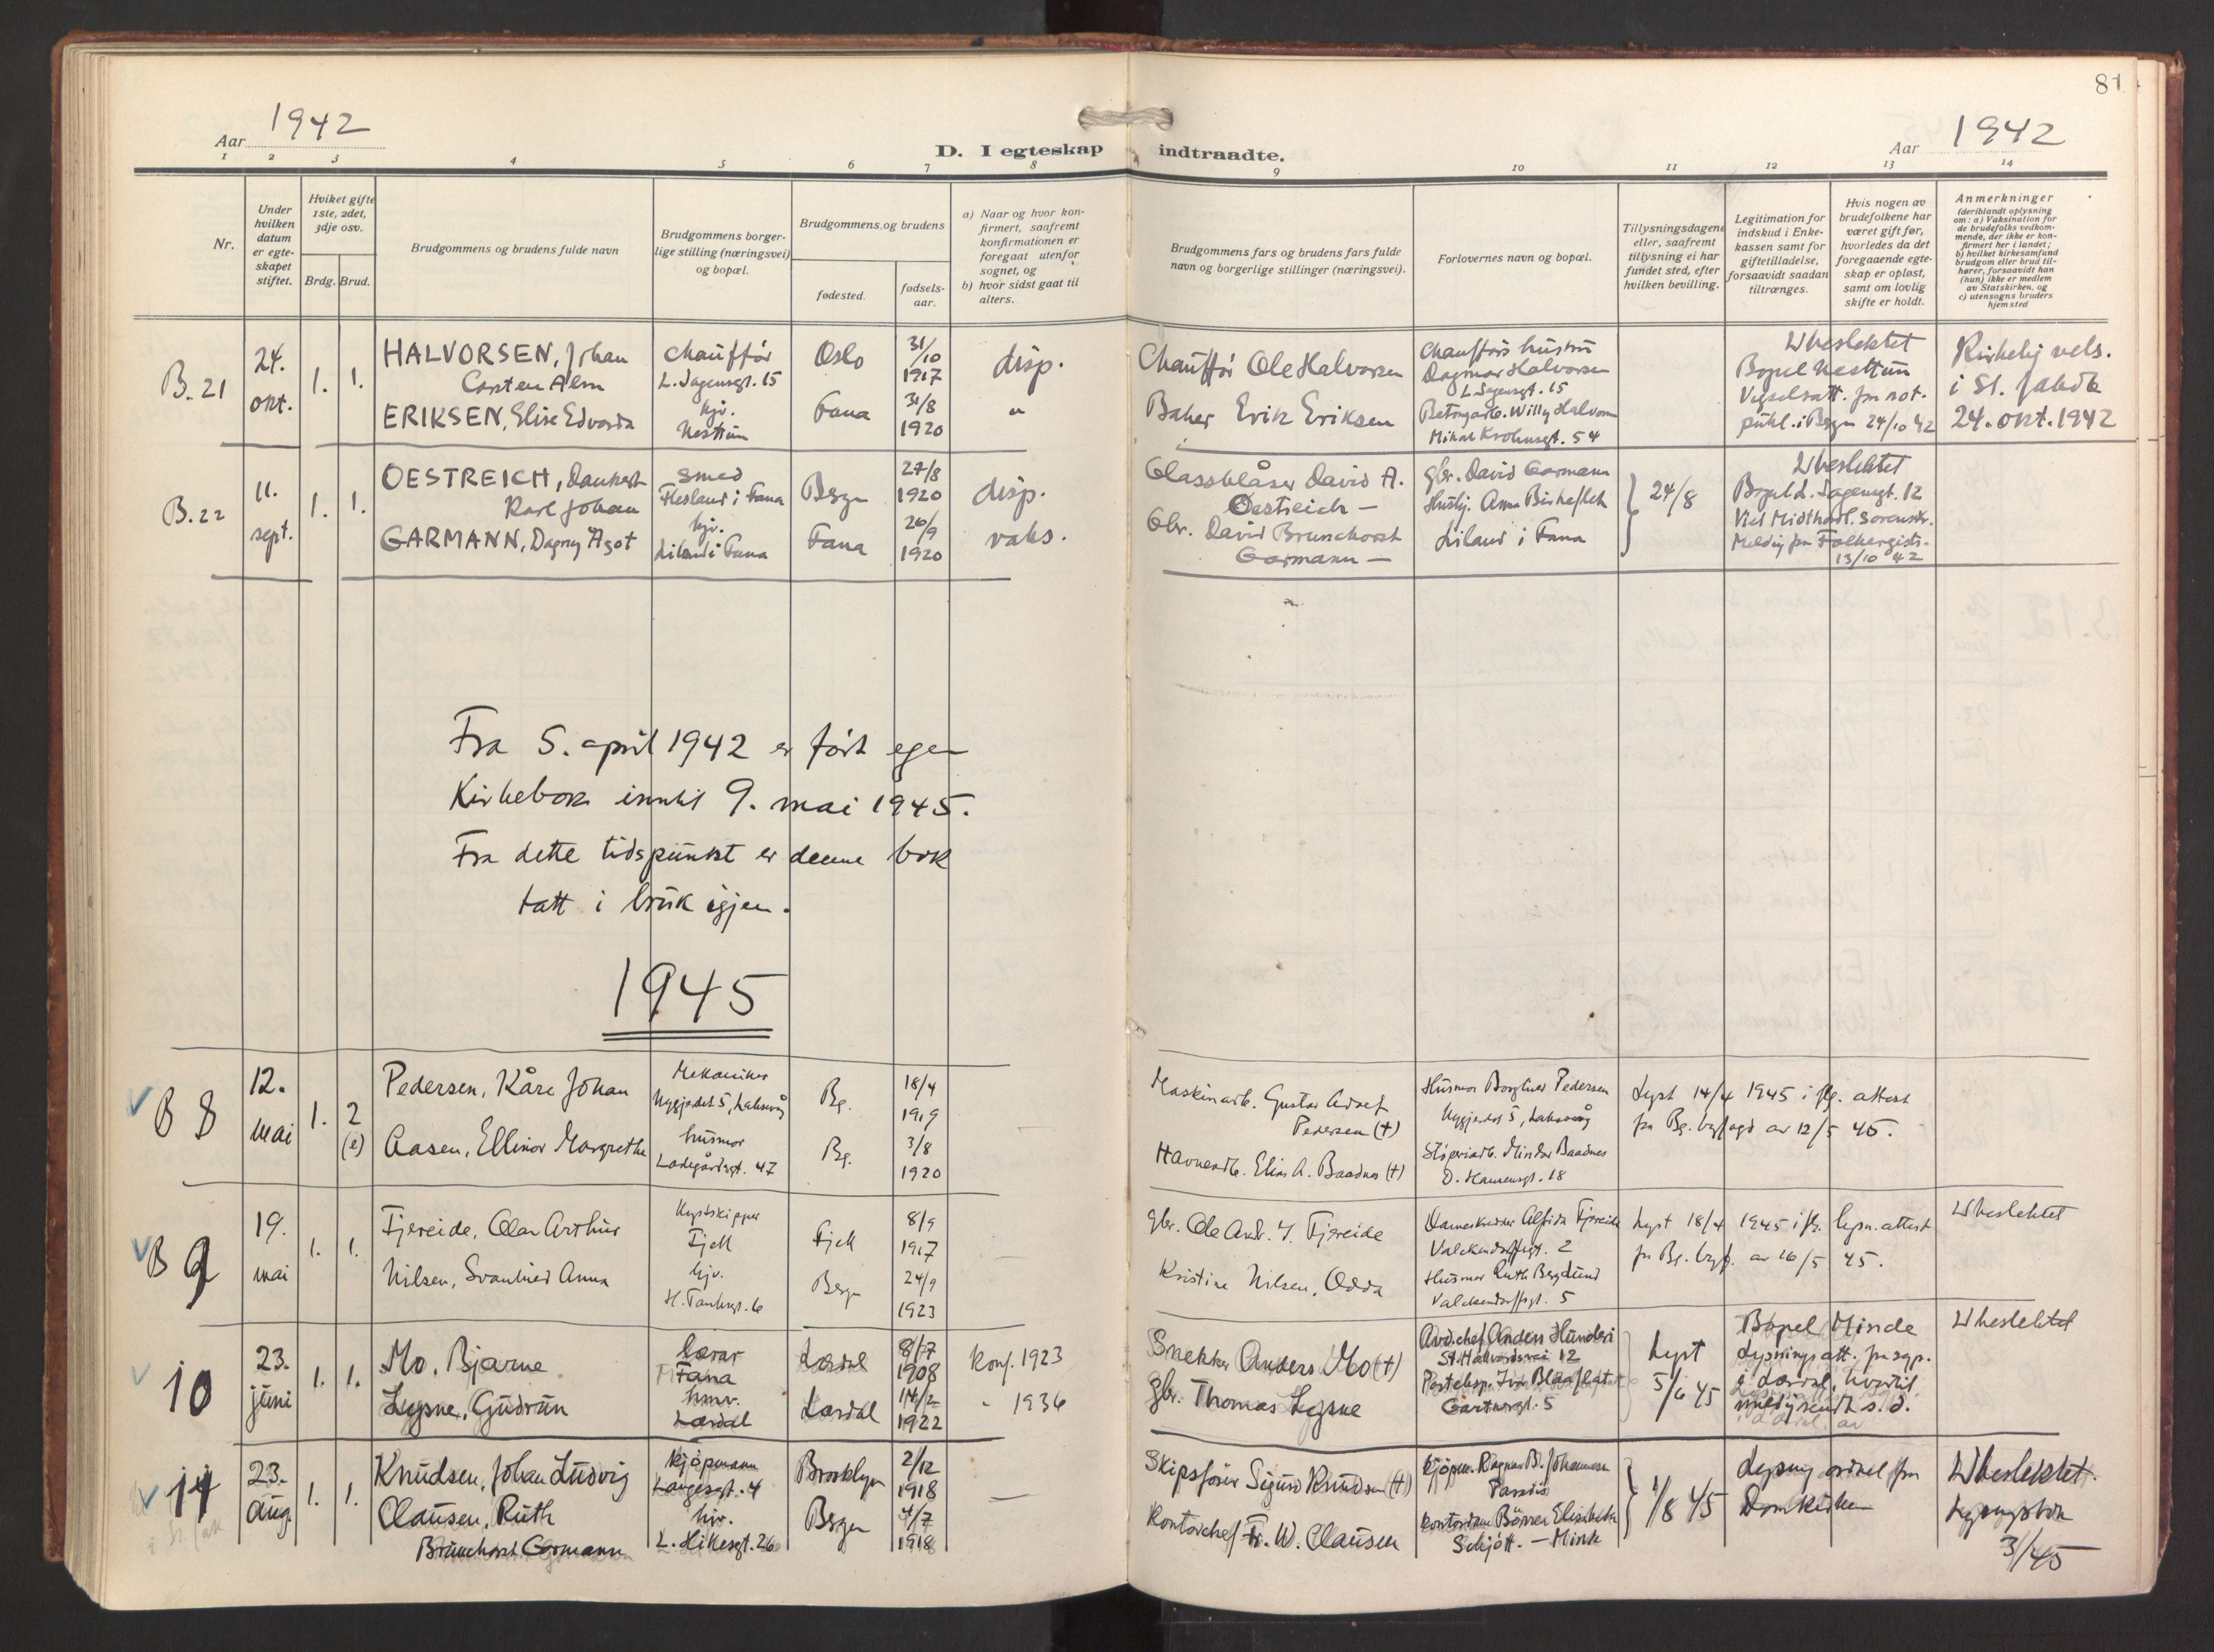 81
Aar 1942
D. I egteskap indtraadte.
Aar 1942
1 2 3 4 5 6 7 8 9 10 11 12 13 14
Nr.
Under hvilken datum er egteskapet stiftet.
Hviket gifte 1ste, 2det, 3dje osv.
Brdg. Brud.
Brudgommens og brudens fulde navn
Brudgommens borgerlige stilling (næringsvei) og bopæl.
Brudgommens og brudens
fødested.
fødselsaar.
a) Naar og hvor konfirmert, saafremt konfirmationen er foregaat utenfor sognet, og
b) hvor sidst gaat til alters.
Brudgommens fars og brudens fars fulde navn og borgerlige stillinger (næringsvei).
Forlovernes navn og bopæl.
Tillysningsdagene eller, saafremt tillysning ei har fundet sted, efter hvilken bevilling.
Legitimation for indskud i Enkekassen samt for giftetilladelse, forsaavidt saadan tiltrænges.
Hvis nogen av brudefolkene har været gift før, hvorledes da det foregaaende egteskap er opløst, samt om lovlig skifte er holdt.
Anmerkninger
(deriblandt oplysning om: a) Vaksination for de brudefolks vedkommende, der ikke er konfirmert her i landet; b) hvilket kirkesamfund brudgom eller brud tilhører, forsaavidt han (hun) ikke er medlem av Statskirken, og c) utensogns bruders hjemsted
B.21
24. okt.
1. 1.
HALVORSEN, Johan
Carsten Alm
ERIKSEN, Elise Edvarda
Chauffør
L. Sagensgt. 15
hjv.
Nesttun
Oslo
Fana
31/10 1917
31/8 1920
disp.
"
Chauffør Ole Halvorsen
Baker Erik Eriksen
Chaufførs hustru
Dagmar Halvorsen
L. Sagensgt. 15
Betongarb. Willy Halvorsen
Michael Krohnsgt. 54
Ubeslektet
Bopel Nesttun
Vigselsatt. fra not.
publ. i Bergen 24/10 42
Kirkelig vels.
i St. Jakob
24. okt. 1942
B.22
11. sept.
1. 1.
OESTREICH, Dankert
Karl Johan
GARMANN, Dagny Agot
Smed
Flesland i Fana
hjv.
Liland i Fana
Bergen
Fana
27/8 1920
26/9 1920
disp.
vaks.
Glassblåser David A.
Oestreich —
Gbr. David Brunchorst
Garmann —
gbr. David Garmann
Husbj. Anna Birkeflet
Liland i Fana
24/8
Ubeslektet
Bopel L. Sagensgt. 12
Viet Midthordl. Sorenskr.
Melding fra Folkeregistr.
13/10 42
Fra 5. april 1942 er ført egen
Kirkebok inntil 9. mai 1945.
Fra dette tidspunkt er denne bok
tatt i bruk igjen.
1945
B 8
12. mai
1. 2 (e)
Pedersen, Kåre Johan
Aasen, Ellinor Margrethe
Mekaniker
Nygjerdet 5, Laksevåg
husmor
Ladegårdsgt. 47
Bg.
Bg.
18/4 1919
3/8 1920
Maskinarb. Gustav Adolf
Pedersen (†)
Havnearb. Elias A. Baadnes (†)
Husmor Borghild Pedersen
Nygjerdet 5, Laksevåg
Støperiarb. Mindor Baadnes
D. Hansensgt. 18
Lyst 14/4 1945 i flg. attest
fra Bg. byfogd av 12/5 45.
B 9
19. mai
1. 1.
Fjereide, Olav Arthur
Nilsen, Svanhild Anna
Kystskipper
Fjell
hjv.
H. Tanksgt. 6
Fjell
Bergen
8/9 1917
24/9 1923
gbr. Ole Andr. J. Fjereide
Kristine Nilsen, Odda
Dameskredder Alfida Fjereide
Valckendorffsgt. 2
Husmor Ruth Berglund
Valckendorffsgt. 5
Lyst 18/4 1945 i flg. lysn. attest
fra Bg. byf. av 16/5 45.
Ubeslektet
10
23. juni
1. 1.
Mo, Bjarne
Lysne, Gudrun
lærar
Fana
hmv.
Lærdal
Lærdal
Lærdal
8/7 1908
14/2 1922
konf. 1923
" 1936
Snekker Anders Mo (†)
gbr. Thomas Lysne
Avd.chef Anders Hunderi
St. Halvardsvei 12
Posteksp. Ivar Blaaflat
Gartnergt. 5
Lyst
5/6 45
Bopel Minde
Lysnings att. fra sgp.
i Lærdal, hvortil
s. d.
Ubeslektet
14
23. aug.
1. 1.
Knudsen, Johan Ludvig
Clausen, Ruth
Brunchorst Garmann
kjøpmann
Langesgt. 4
hjv.
L. Hillesgt. 26
Brooklyn
Bergen
2/12 1918
4/7 1918
Skipsfører Sigurd Knudsen (†)
Kontorchef Fr. W. Clausen
Kjøpm. Ragnar B. Johannesen
Paradis
Kontordame Elisabeth
Schjøtt. — Minde
1/8 45
Lysning ordnet fra
Domkirken
Ubeslektet.
Lysngsbok
3/45